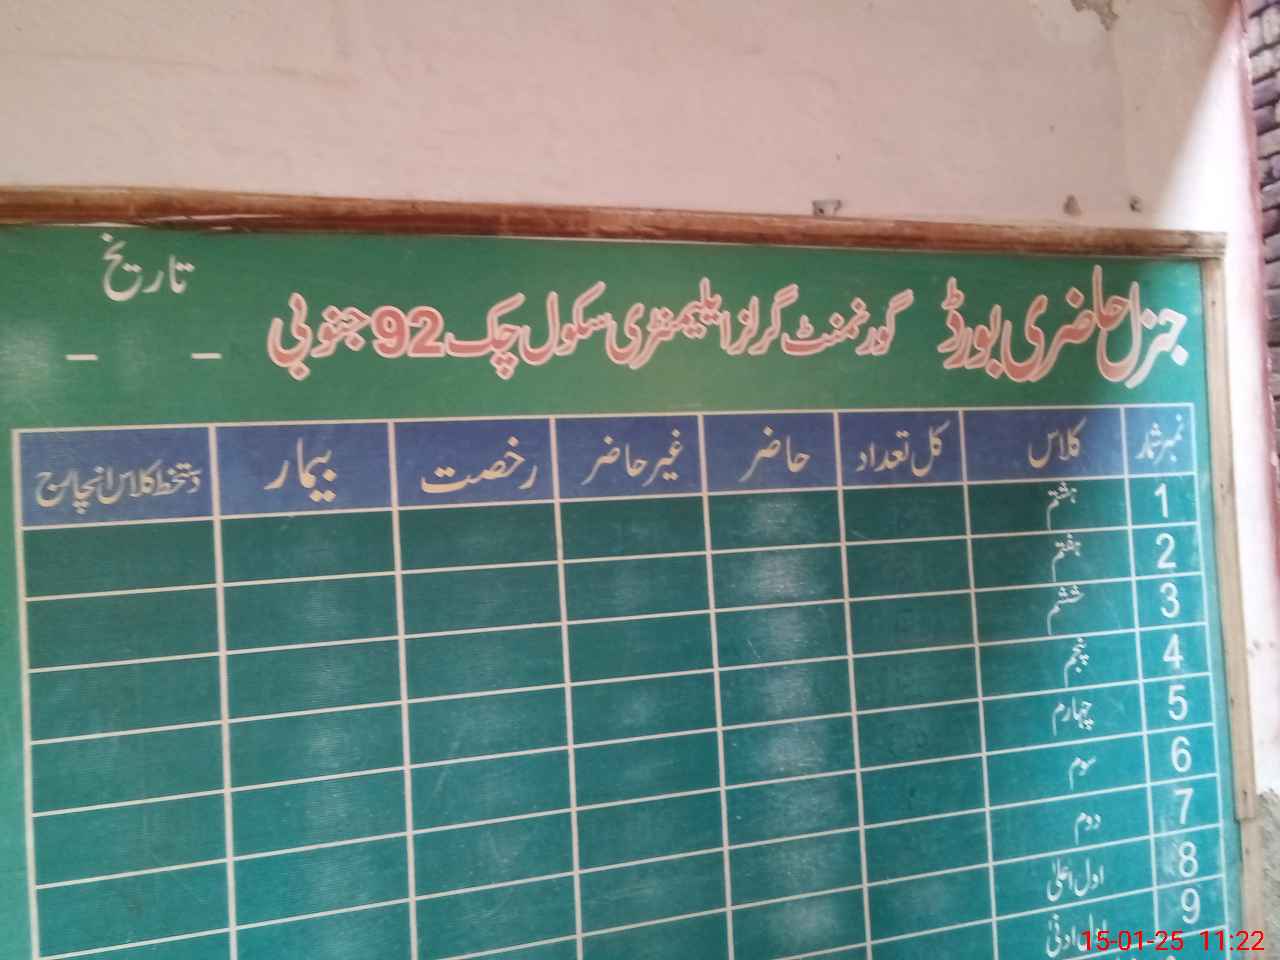 تاریخ
جنرل حاضری بورڈ گورنمنٹ گرلز ایلیمنٹری سکول چک 92 جنوبی
نمبر شمار کلاس کل تعداد حاضر غیر حاضر رخصت بیمار دستخط کلاس انچارج
1 ہشتم
2 ہفتم
3 ششم
4 پنجم
5 چہارم
6 سوم
7 دوم
8 اول اعلیٰ
9 اول ادنیٰ
15-01-25 11:22